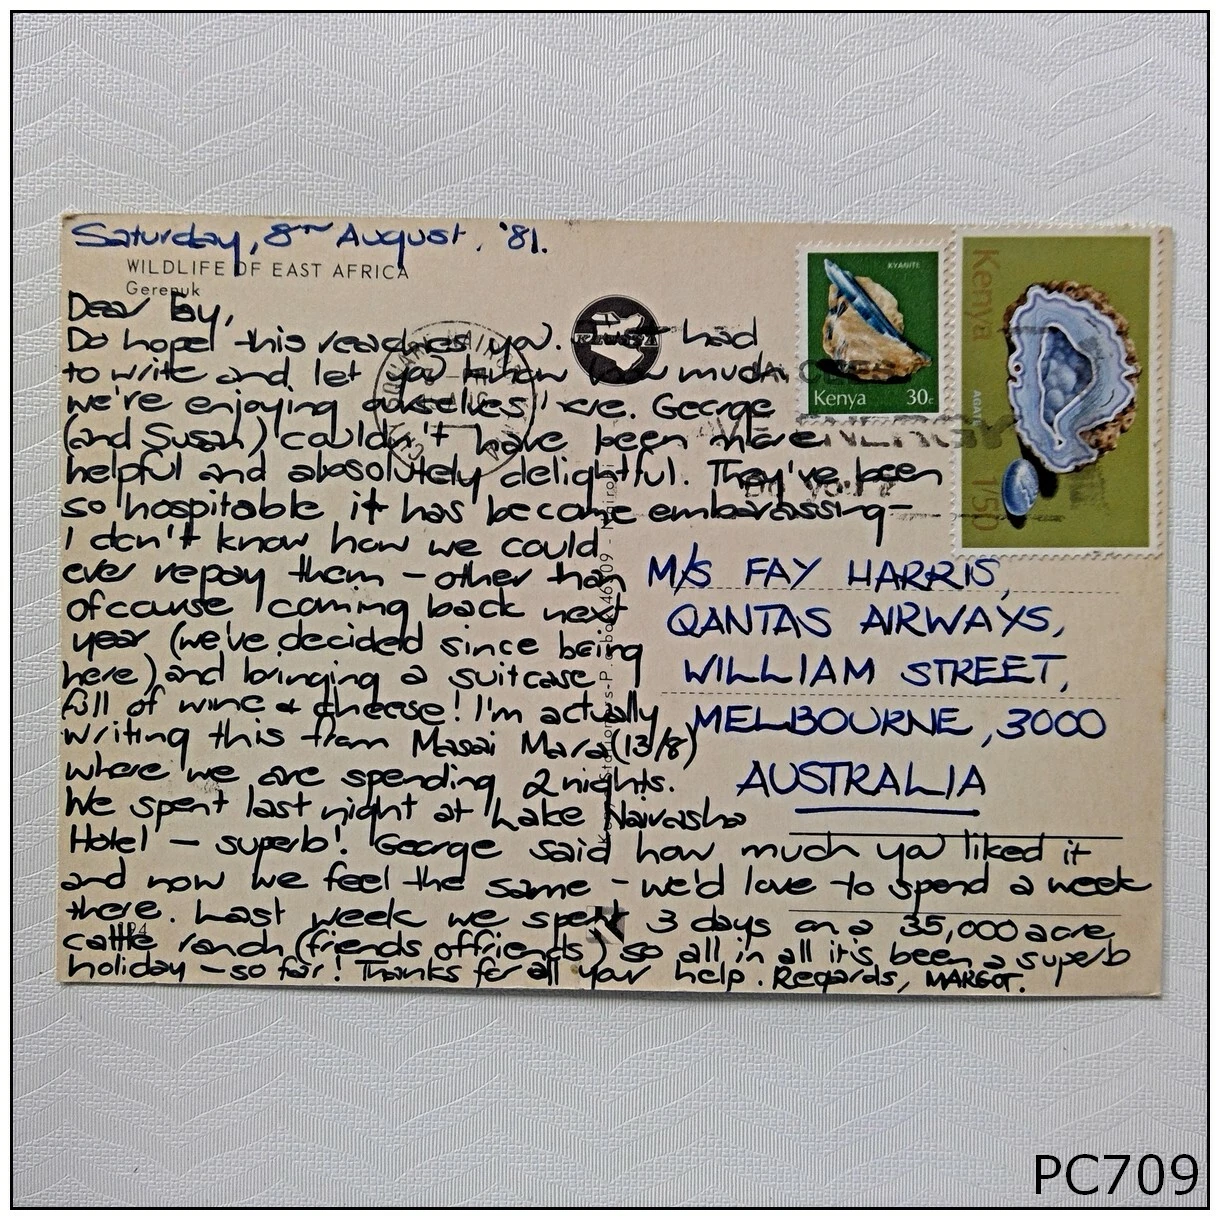 Saturday, 8TH August, '81.
WILDLIFE OF EAST AFRICA
Gerenuk
Dear Fay,
Do hope this reaches you. had
to write and let you know how much
we're enjoying ourselves here. George
(and Susan) couldn't have been more
helpful and absolutely delightful. They've been
so hospitable it has become embarassing -
I don't know how we could
ever repay them - other than
ofcourse coming back next
year (we've decided since being
here) and bringing a suitcase
full of wine & cheese! I'm actually
writing this from Masai Mara (13/8)
where we are spending 2 nights.
We spent last night at Lake Naivasha
Hotel - superb! George said how much you liked it
and now we feel the same - we'd love to spend a week
there. Last week we spent 3 days on a 35,000 acre
cattle ranch (friends of friends) so all in all it's been a superb
holiday - so far! Thanks for all your help. Regards, MARGOT.
KYANITE
Kenya 30c
Kenya
AGATE
150
M/S FAY HARRIS,
QANTAS AIRWAYS,
WILLIAM STREET,
MELBOURNE, 3000
AUSTRALIA
PC709